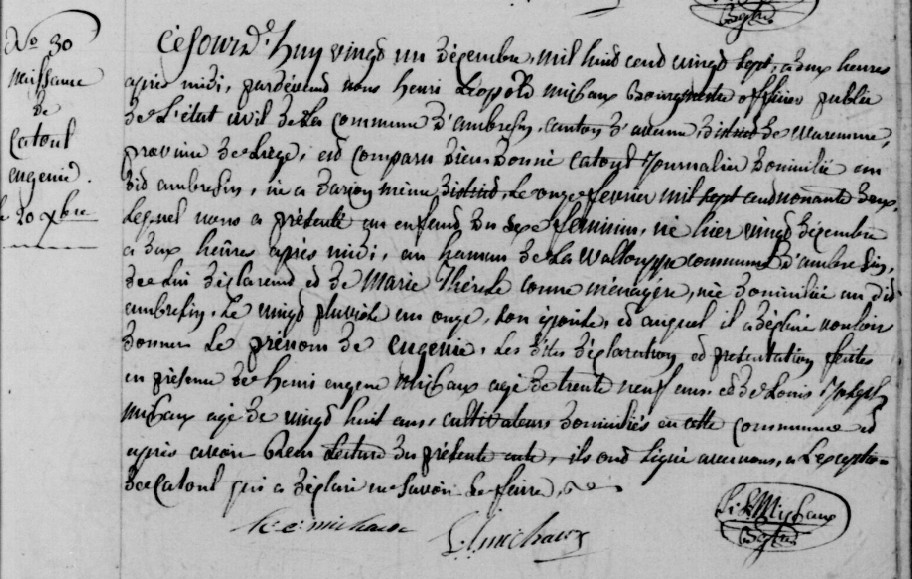 N.o 30
Naissance
de
Catoul
eugenie.
le 20 xbre
Cejourd'huy vingd un décembre, mil huid cend vingd sept, a deux heures
après midi, pardévend nous henri Léopold michaux Bourgmestre officier public
de L'état civil de La commune d'ambresin, canton d'avenne, district de Waremme,
province de Liège, est comparu Dieudonné Catoul Journalier domicilié au
did ambresin, né a darion même district, Le onze fevrier mil sept cend nonante deux,
Lequel nous a présenté un enfend du sexe féminin, né hier vingd décembre
a deux heures après midi, au hameau de La Wallouppe commune d'ambresin,
de Lui déclarend ed de Marie thérèse conne ménagère, née domiciliée au did
ambresin, Le vingd pluviôse an onze, son épouse, ed auquel il a déclaré vouloir
donner Le prénom de eugenie. Les dites déclaration ed présentation faites
en présence de henri eugene michaux agé de trente neuf ans, ed de Louis Joseph
michaux agé de vingd huit ans, cultivateurs domiciliés en cette commune ed
après avoir Lecture du présente acte, ils ond signé avec nous, a L'exception
de Catoul qui a déclaré ne savoir Le faire.
h e michaux
L. J. michaux
H. L. Michaux
Bgtre